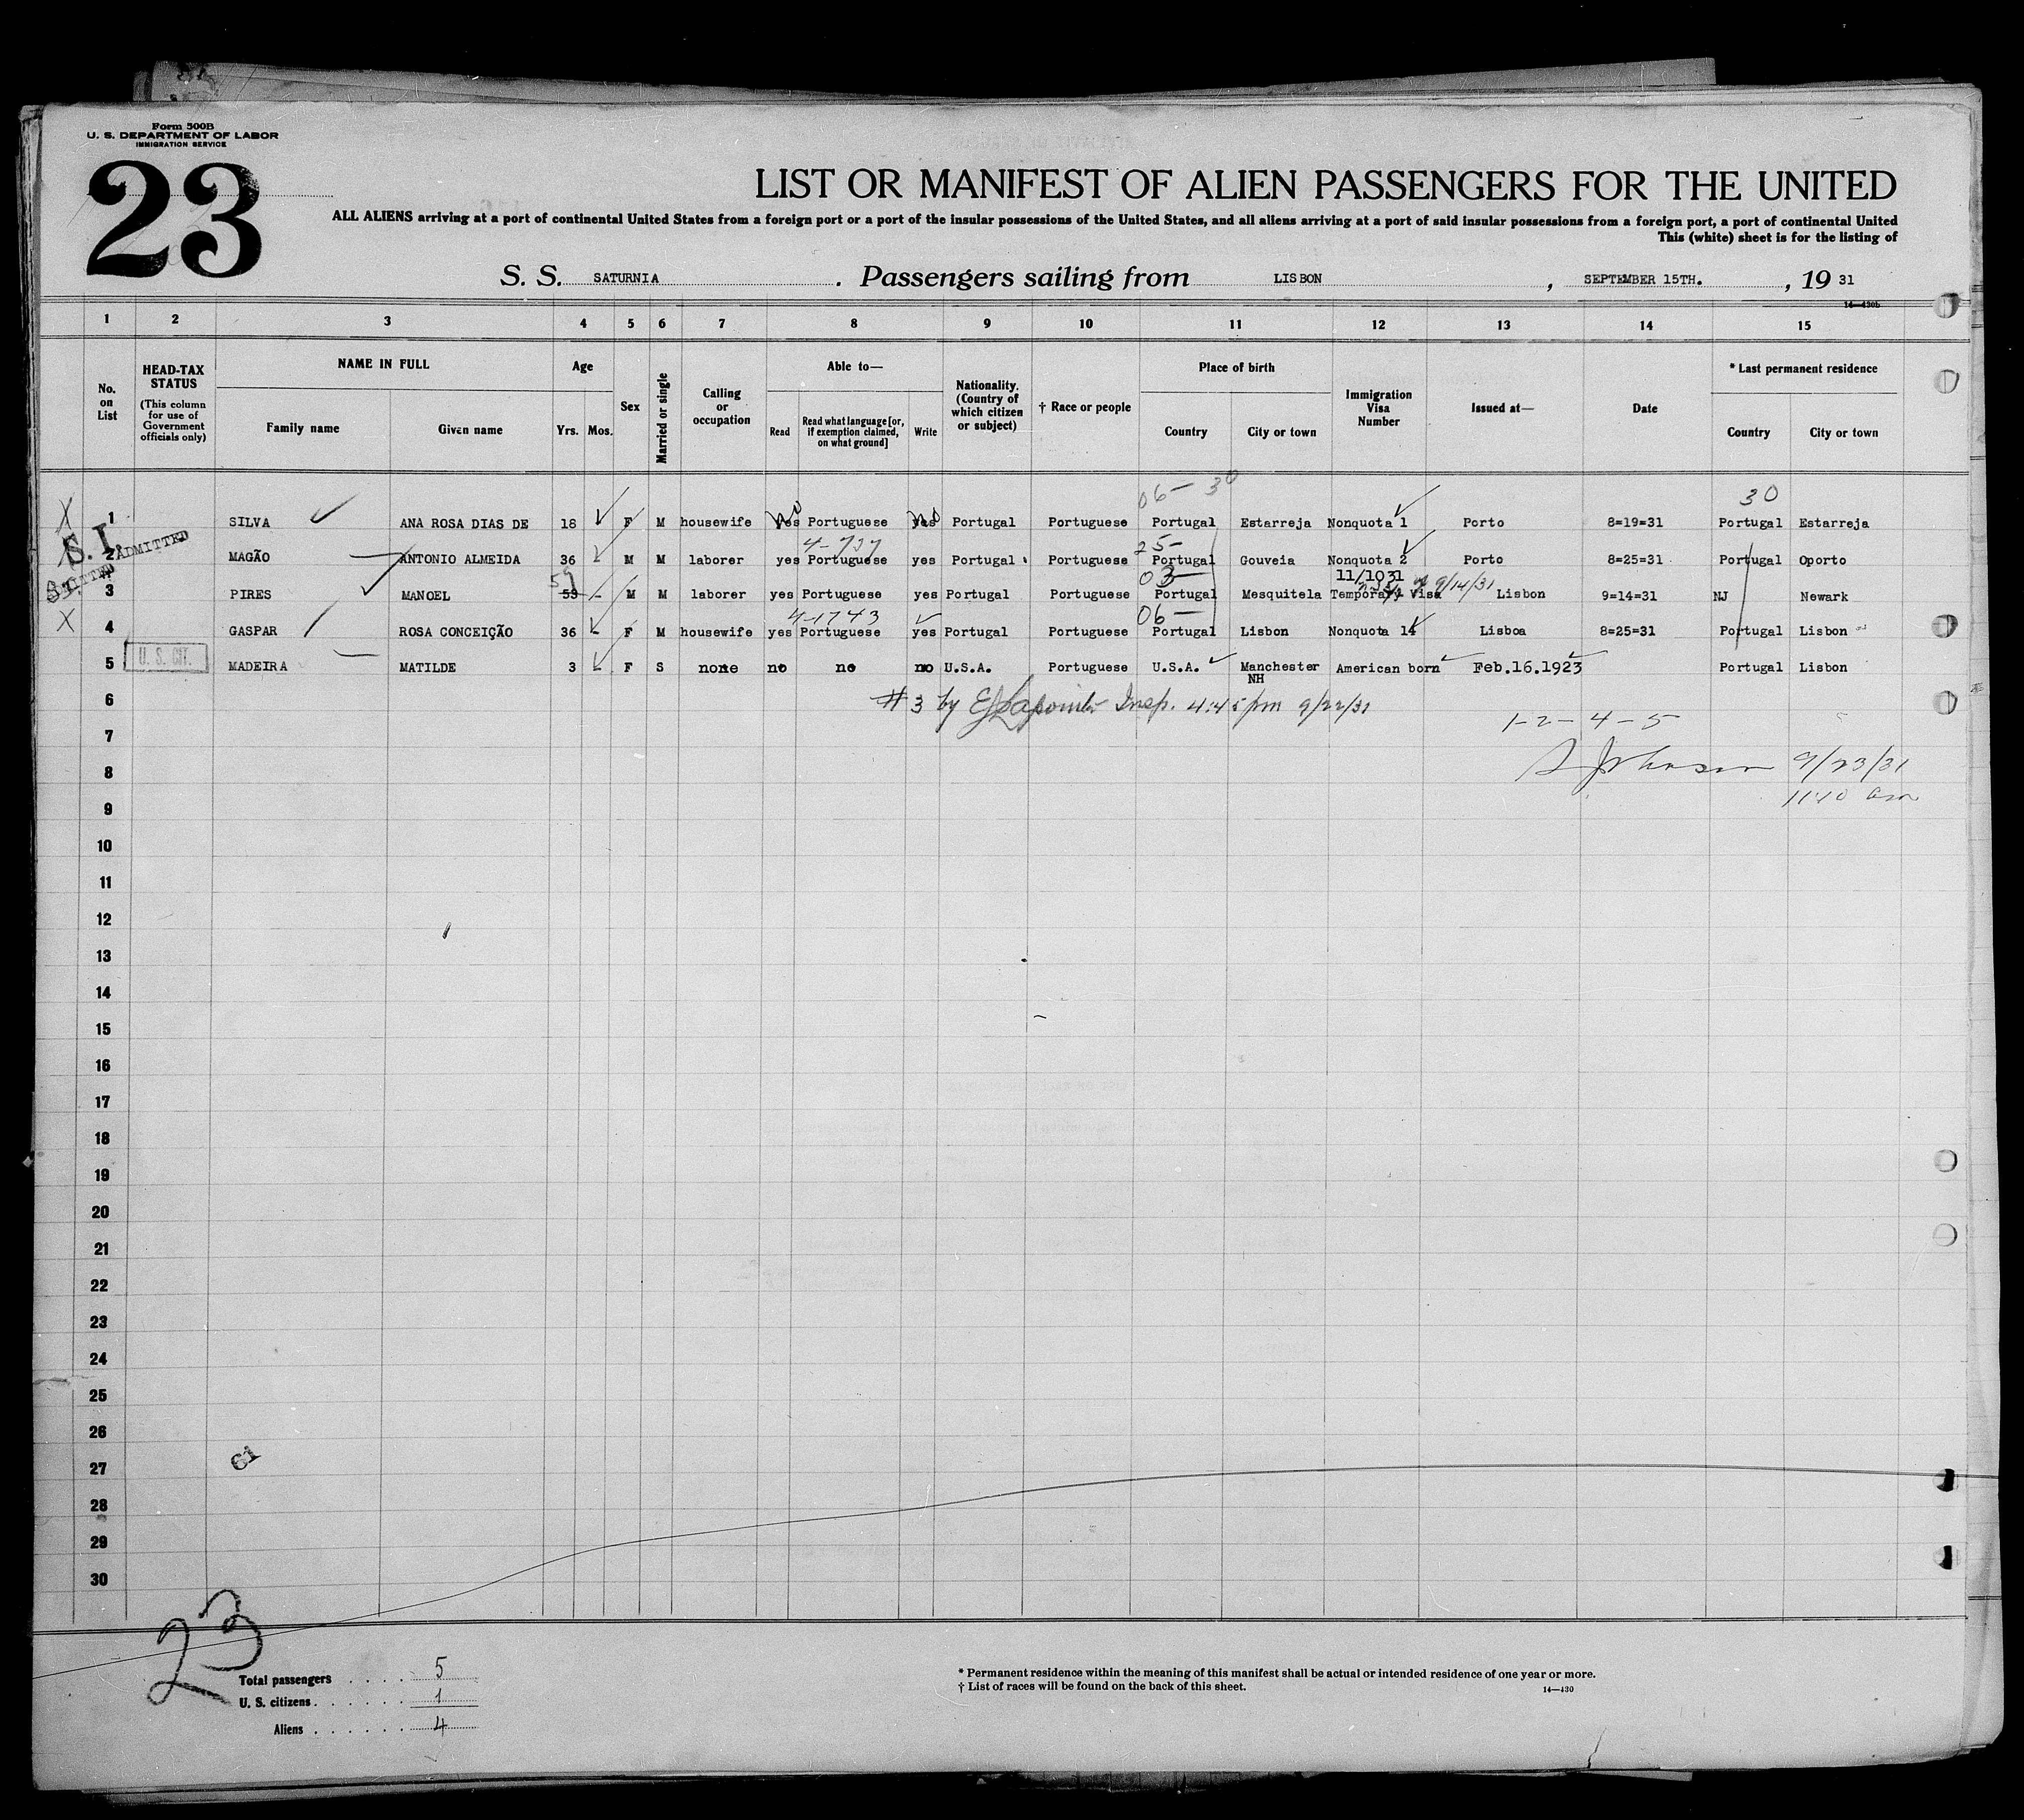 Form 500B
U. S. DEPARTMENT OF LABOR
IMMIGRATION SERVICE
23
LIST OR MANIFEST OF ALIEN PASSENGERS FOR THE UNITED
ALL ALIENS arriving at a port of continental United States from a foreign port or a port of the insular possessions of the United States, and all aliens arriving at a port of said insular possessions from a foreign port, a port of continental United
This (white) sheet is for the listing of
S. S. SATURNIA . Passengers sailing from LISBON , SEPTEMBER 15TH. , 19 31
14—430b
1 2 3 4 5 6 7 8 9 10 11 12 13 14 15
No. on List
HEAD-TAX STATUS (This column for use of Government officials only)
NAME IN FULL
Family name Given name
Age
Yrs. Mos.
Sex
Married or single
Calling or occupation
Able to—
Read Read what language [or, if exemption claimed, on what ground] Write
Nationality. (Country of which citizen or subject)
† Race or people
Place of birth
Country City or town
Immigration Visa Number
Issued at—
Date
* Last permanent residence
Country City or town
06 — 30 30
X 1 SILVA ANA ROSA DIAS DE 18 F M housewife yes No Portuguese yes No Portugal Portuguese Portugal Estarreja Nonquota 1 Porto 8=19=31 Portugal Estarreja
S. I. ADMITTED 4-737 25-
2 MAGÃO ANTONIO ALMEIDA 36 M M laborer yes Portuguese yes Portugal Portuguese Portugal Gouveia Nonquota 2 Porto 8=25=31 Portugal Oporto
59 03— 11/1031 9/14/31
3 PIRES MANOEL 53 - M M laborer yes Portuguese yes Portugal Portuguese Portugal Mesquitela Temporary Visa Lisbon 9=14=31 NJ Newark
4-1743 06—
X 4 GASPAR ROSA CONCEIÇÃO 36 - F M housewife yes Portuguese yes Portugal Portuguese Portugal Lisbon Nonquota 14 Lisboa 8=25=31 Portugal Lisbon
U. S. CIT.
5 MADEIRA MATILDE 3 - F S none no no no U.S.A. Portuguese U.S.A. Manchester NH American born Feb.16.1923 Portugal Lisbon
6 #3 by Insp. 4:45 pm 9/22/31
1-2-4-5
7
8 Johnson 9/23/31
11:40 am
9
10
11
12
13
14
15
16
17
18
19
20
21
22
23
24
25
26
27
28
29
30
23
Total passengers . . . . 5
U. S. citizens . . . . . . 1
Aliens . . . . . . 4
* Permanent residence within the meaning of this manifest shall be actual or intended residence of one year or more.
† List of races will be found on the back of this sheet.
14—430